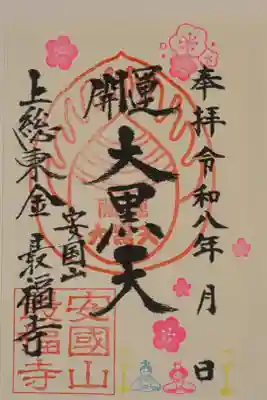 奉拝 令和八年 月 日
開運
大黒天
上総東金 安国山 最福寺
安國山
最福寺